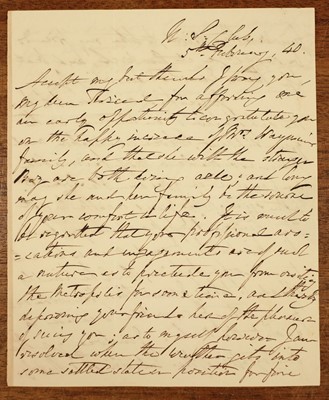 5th February, 40.
Accept my best thanks I pray you,
my dear for affording me
an early opportunity to congratulate you
on the happy increase of Mrs
family, and that she with the stranger
are both doing able; and long
may she and her family be the source
of your comfort in life. It is much to
be regretted that your professional avo=
=cations and engagements are of such
a nature as to preclude you from visiting
the Metropolis for some time, and thereby
depriving your friends here of the pleasure
of seeing you, as to myself however I am
resolved when the weather gets into
some settled state or position for fine